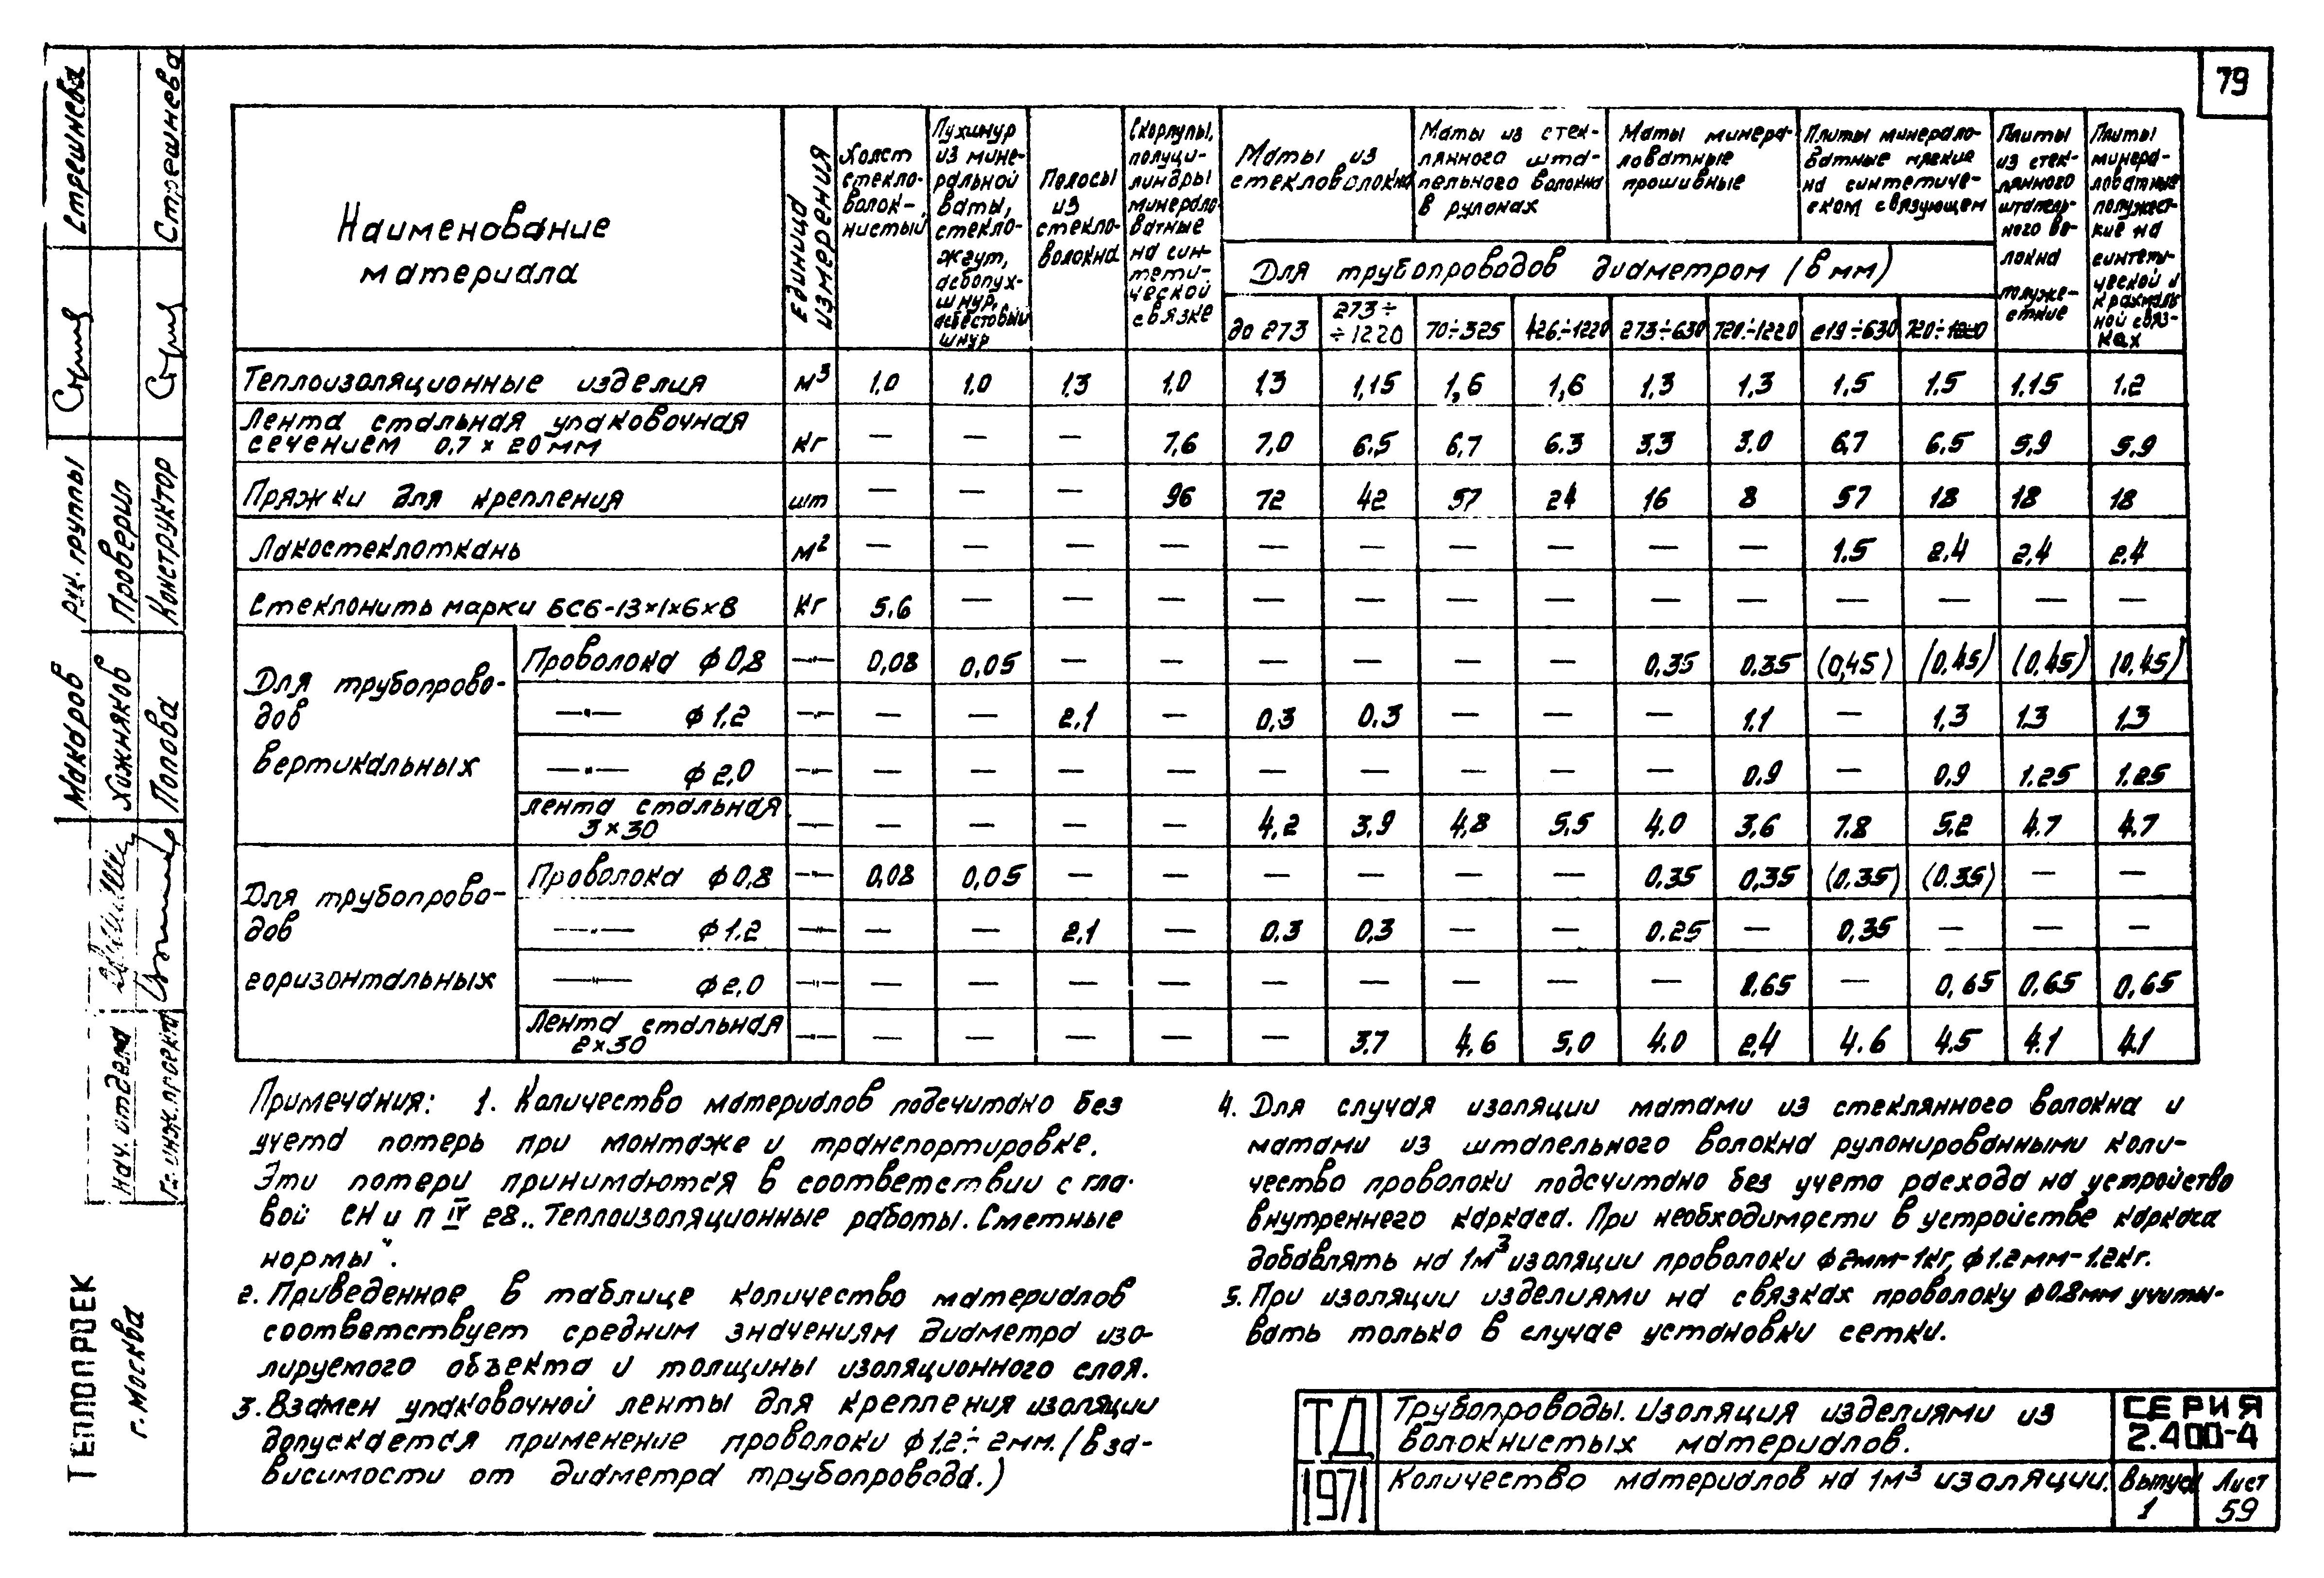 79
Наименование
материала
Единица
измерения
Холст
стекло-
волок-
нистый
Пухшнур
из мине-
ральной
ваты,
стекло-
жгут,
асбопух-
шнур,
асбестовый
шнур
Полосы
из
стекло-
волокна
Скорлупы,
полуци-
линдры
минерало-
ватные
на син-
тети-
ческой
связке
Маты из
стекловолокна
Маты из стек-
лянного шта-
пельного волокна
в рулонах
Маты минера-
ловатные
прошивные
Плиты минерало-
ватные мягкие
на синтетиче-
ском связующем
Плиты
из стек-
лянного
штапель-
ного во-
локна
полуже-
сткие
Плиты
минера-
ловатные
полужест-
кие на
синтети-
ческой и
крахмаль
ной связ-
ках
Для трубопроводов диаметром (в мм)
до 273 273÷÷1220 70÷325 426÷1220 273÷630 720÷1220 219÷630 720÷1220
Теплоизоляционные изделия м³ 1.0 1.0 1.3 1.0 1.3 1,15 1,6 1,6 1.3 1.3 1.5 1.5 1.15 1.2
Лента стальная упаковочная
сечением 0.7 × 20 мм кг — — — 7,6 7,0 6.5 6,7 6.3 3,3 3.0 6,7 6.5 5,9 5.9
Пряжки для крепления шт — — — 96 72 42 57 24 16 8 57 18 18 18
Лакостеклоткань м² — — — — — — — — — — 1.5 2.4 2,4 2.4
Стеклонить марки БС6-13×1×6×8 кг 5.6 — — — — — — — — — — — — —
Для трубопрово-
дов
вертикальных
Проволока ϕ 0,8 —"— 0,08 0,05 — — — — — — 0.35 0.35 (0,45) (0.45) (0.45) (0.45)
—"— ϕ 1.2 —"— — — 2.1 — 0,3 0.3 — — — 1.1 — 1,3 1.3 1.3
—"— ϕ 2,0 —"— — — — — — — — — — 0.9 — 0.9 1.25 1.25
Лента стальная
3×30 —"— — — — — 4,2 3,9 4,8 5,5 4.0 3,6 7.8 5.2 4.7 4.7
Для трубопрово-
дов
горизонтальных
Проволока ϕ 0,8 —"— 0,08 0,05 — — — — — — 0.35 0,35 (0.35) (0.35) — —
—"— ϕ 1.2 —"— — — 2,1 — 0.3 0,3 — — 0.25 — 0,35 — — —
—"— ϕ 2,0 —"— — — — — — — — — — 2.65 — 0,65 0.65 0,65
Лента стальная
2×30 —"— — — — — — 3.7 4,6 5,0 4.0 2,4 4.6 4.5 4.1 4.1
Примечания: 1. Количество материалов подсчитано без
учета потерь при монтаже и транспортировке.
Эти потери принимаются в соответствии с гла-
вой СН и П IV 28 „Теплоизоляционные работы. Сметные
нормы".
2. Приведенное в таблице количество материалов
соответствует средним значениям диаметра изо-
лируемого объекта и толщины изоляционного слоя.
3. Взамен упаковочной ленты для крепления изоляции
допускается применение проволоки ϕ 1.2÷2мм. (в за-
висимости от диаметра трубопровода.)
4. Для случая изоляции матами из стеклянного волокна и
матами из штапельного волокна рулонированными коли-
чество проволоки подсчитано без учета расхода на устройство
внутреннего каркаса. При необходимости в устройстве каркаса
добавлять на 1м³ изоляции проволоки ϕ 2мм-1кг, ϕ 1.2мм-1.2кг.
5. При изоляции изделиями на связках проволоку ϕ 0.8мм учиты-
вать только в случае установки сетки.
ТД
1971
Трубопроводы. Изоляция изделиями из
волокнистых материалов.
Количество материалов на 1м³ изоляции.
СЕРИЯ
2.400-4
Выпуск
1
Лист
59
Стрешнева
Стрешнева
Рук. группы
Проверил
Конструктор
Макаров
Хижняков
Попова
Нач. отдела
Гл. инж. проекта
ТЕПЛОПРОЕК
г. Москва